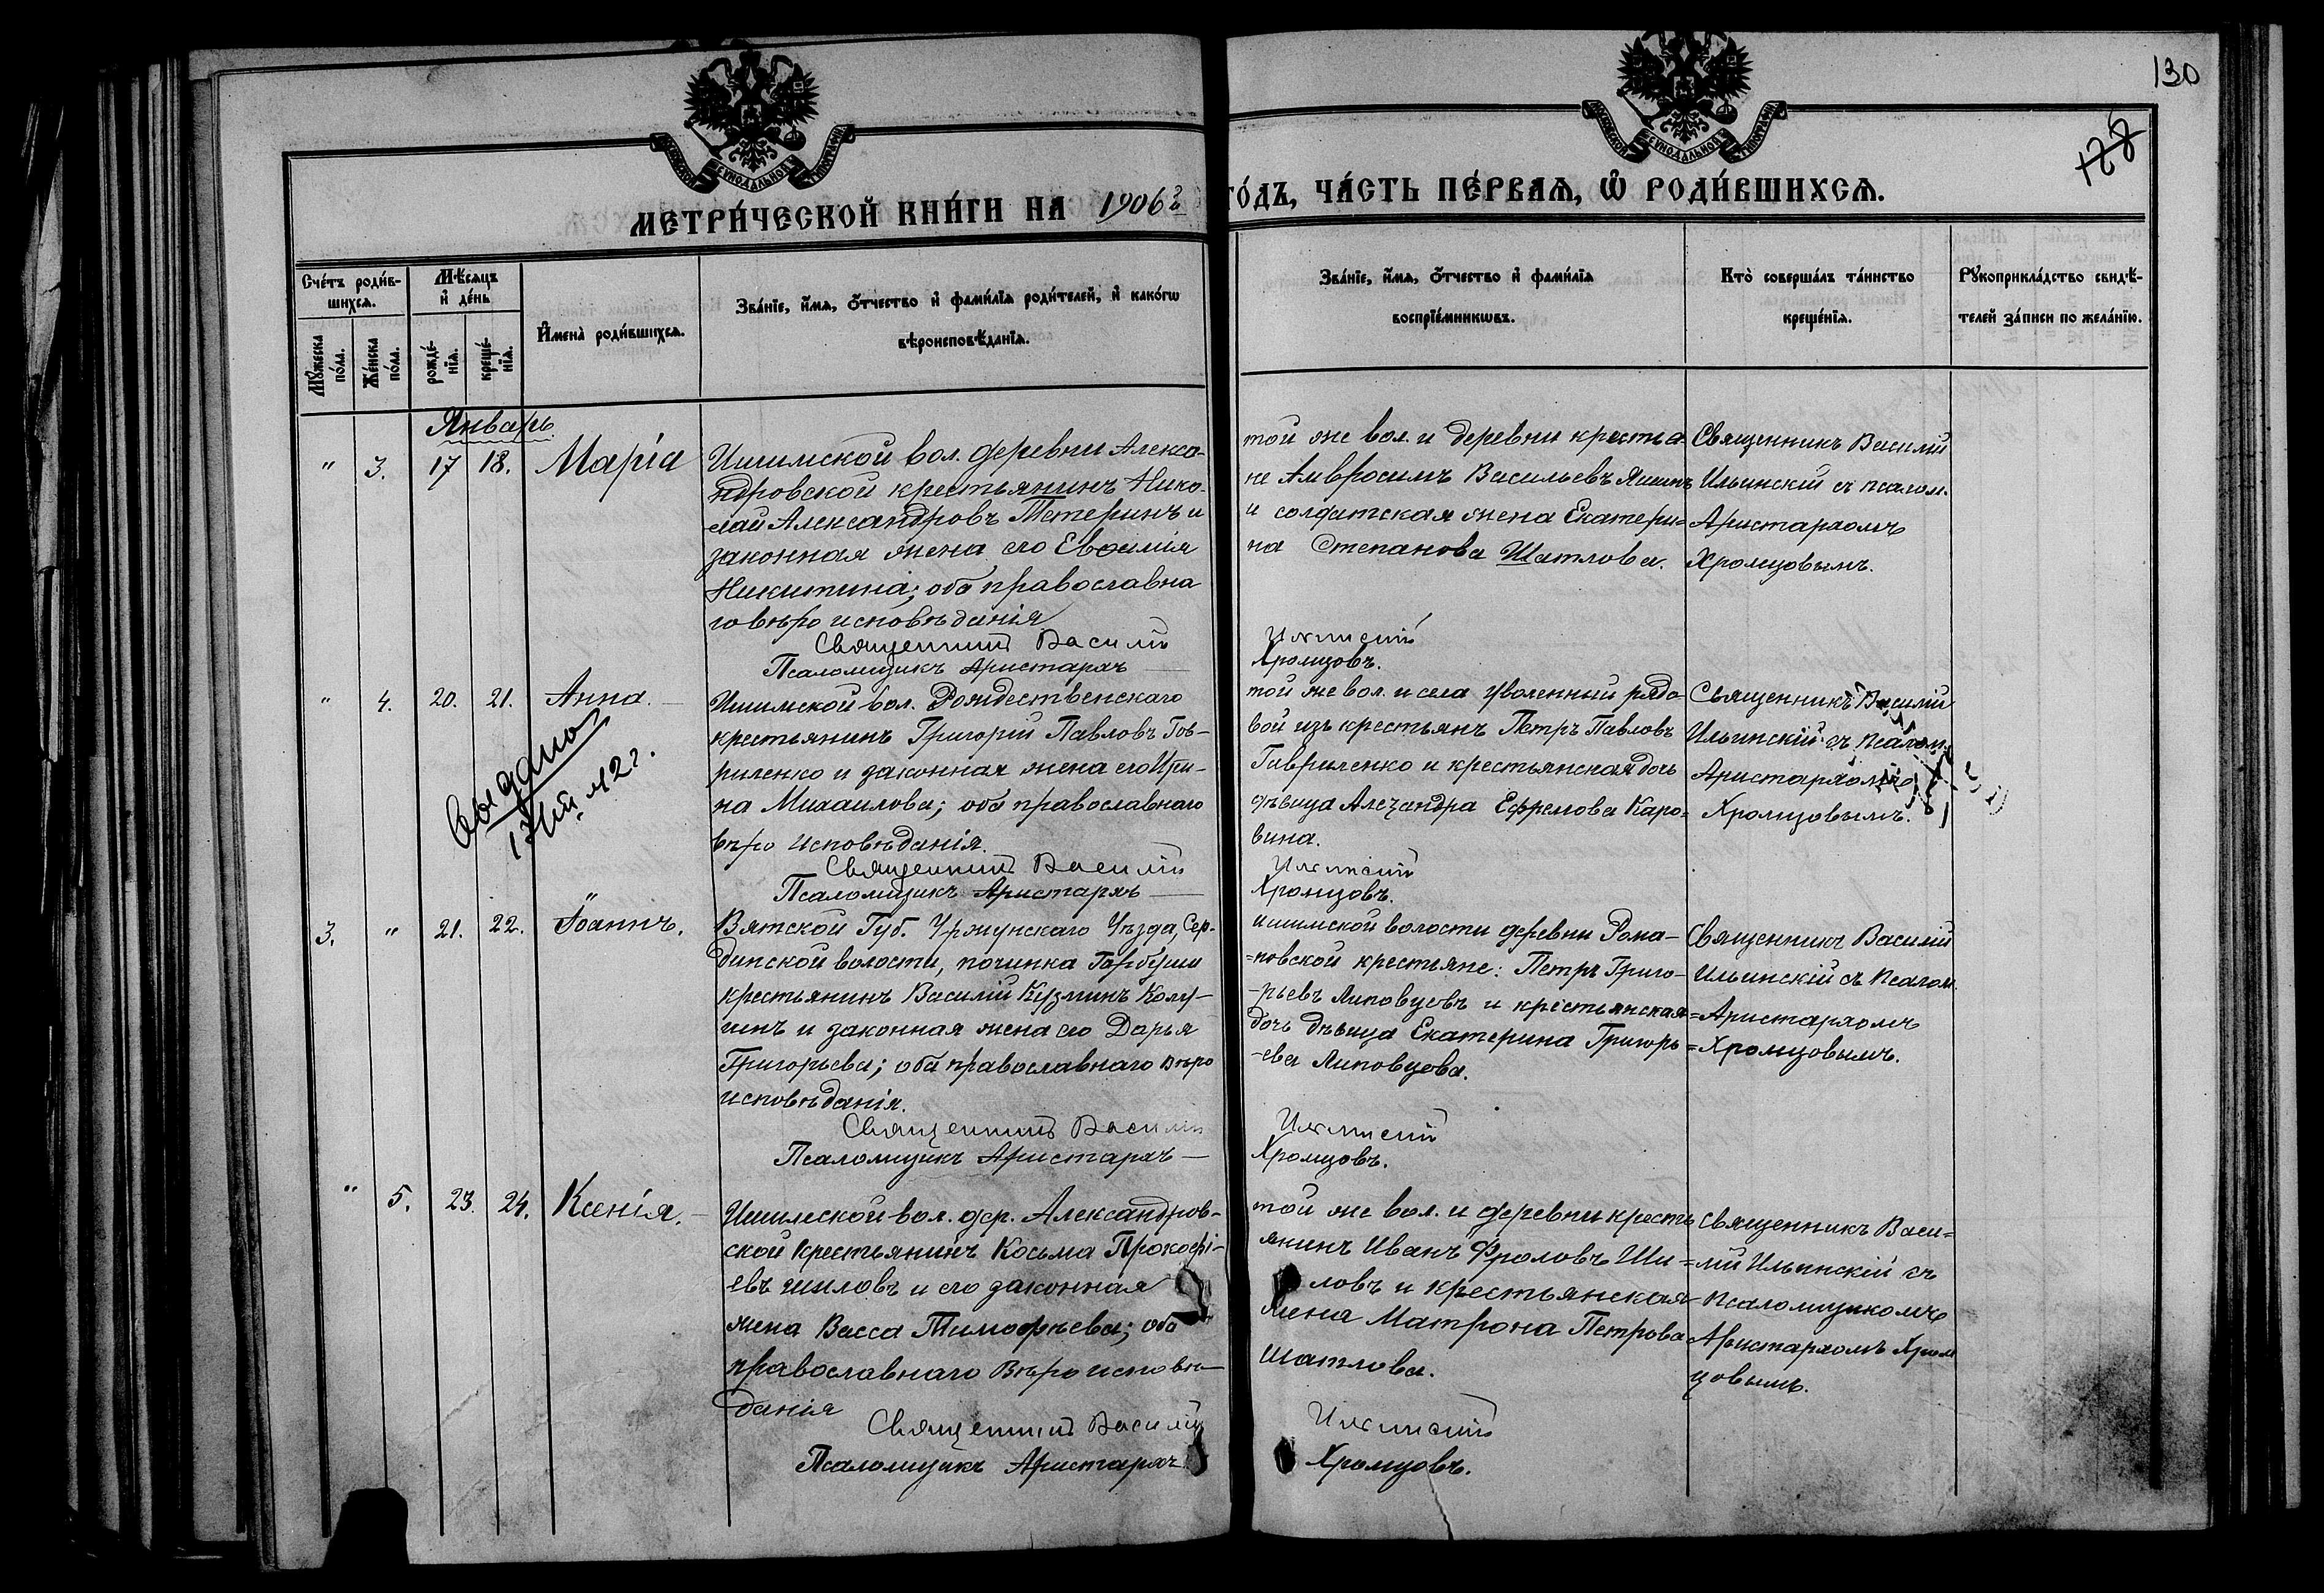 130
128
МЕТРИ́ЧЕСКОЙ КНИ́ГИ НА 1906 г. ГО́ДЪ, ЧА́СТЬ ПЕ́РВАЯ, Ѿ РОДИ́ВШИХСЯ.
Сче́тъ роди́в-
шихся.
Мꙋжеска по́ла.
Же́нска по́ла.
Мѣ́сяцъ
и҆ де́нь
рожде́-
нїя.
креще́-
нїя.
И҆мена̀ роди́вшихся.
Зва́нїе, и҆́мя, ѻ҆́тчество и҆ фами́лїя роди́телей, и҆ како́гѡ
вѣроисповѣ́данїя.
Зва́нїе, и҆́мя, ѻ҆́тчество и҆ фами́лїя
воспрїе́мникѡвъ.
Кто̀ соверша́лъ та́инство
креще́нїя.
Рꙋкоприкла́дство свидѣ́-
телей за́писи по жела́нїю.
Январь.
" 3. 17 18. Марія
Ишимской вол. деревни Алекса-
ндровской крестьянинъ Нико-
лай Александровъ Тетеринъ и
законная жена его Евѳимія
Никитина; оба православна
го вѣро исповѣданія
Священникъ Василій
Псаломщикъ Аристархъ
той же вол. и деревни крестья
не Амвросимъ Васильевъ Яшинъ
и солдатская жена Екатери=
на Степанова Шатлова.
Ильинскій
Хромцовъ.
Священникъ Василій
Ильинскій съ псалом.
Аристархомъ
Хромцовымъ.
" 4. 20. 21. Анна.
выдано
12 г.
Ишимской вол. Рождественскаго
крестьянинъ Григорій Павловъ Гав-
риленко и законная жена его Ири-
на Михаилова; оба православнаго
вѣро исповѣданія.
Священникъ Василій
Псаломщикъ Аристархъ
той же вол. и села уволенный рядо
вой изъ крестьянъ Петръ Павловъ
Гавриленко и крестьянская дочь
дѣвица Алеѯандра Ефремова Каро=
вина.
Ильинскій
Хромцовъ.
Священникъ Василій
Ильинскій съ Псалом.
Аристархомъ
Хромцовымъ.
3. " 21. 22. Іоаннъ.
Вятской Губ. Уржунскаго Уѣзда, Сер-
динской волости, починка
крестьянинъ Василій Кузминъ Колу-
шнъ и законная жена его Дарья
Григорьева; оба православнаго вѣро
исповѣданія.
Священникъ Василій
Псаломщикъ Аристархъ
ишимской волости деревни Рома-
=новской крестьяне: Петръ Григо-
-рьевъ Липовцовъ и крестьянская
дочь дѣвица Екатерина Григорь
-ева Липовцова.
Ильинскій
Хромцовъ.
Священникъ Василій
Ильинскій съ Псалом.
=Аристархомъ
=Хромцовымъ.
" 5. 23. 24. Ксенія.
Ишимской вол. дер. Александров-
ской Крестьянинъ Косьма Прокофі-
евъ шиловъ и его законная
жена Васса Тимофѣева; оба
православнаго Вѣро исповѣ-
данія
Священникъ Василій
Псаломщикъ Аристархъ
той же вол. и деревни кресть
янинъ Иванъ Фроловъ Ши=
ловъ и крестьянская
жена Матрона Петрова
Шатлова.
Ильинскій
Хромцовъ.
священникъ Васи=
=лій Ильинскій съ
Псаломщикомъ
Аристархомъ Хром
цовымъ.